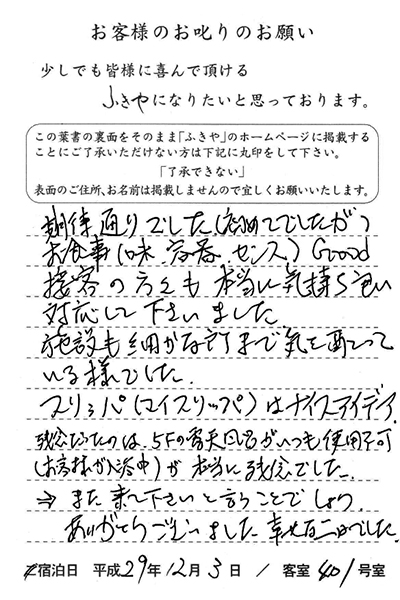 お客様のお叱りのお願い
少しでも皆様に喜んで頂ける
ふきやになりたいと思っております。
この葉書の裏面をそのまま「ふきや」のホームページに掲載する
ことにご了承いただけない方は下記に丸印をして下さい。
「了承できない」
表面のご住所、お名前は掲載しませんので宜しくお願いいたします。
期待通りでした(初めてでしたが)
お食事(味、容器、センス)Good
接客の方々も本当に気持ち良い
対応して下さいました
施設も細かな所まで気を配って
いる様でした.
スリッパ(マイスリッパ)はナイスアイデア
残念だったのは、5Fの露天風呂がいつも使用不可
(お客様が入浴中)が本当に残念でした.
⇒ また来て下さいと言うことでしょう.
ありがとうございました 幸せな二日でした.
宿泊日 平成29年12月3日 / 客室401号室